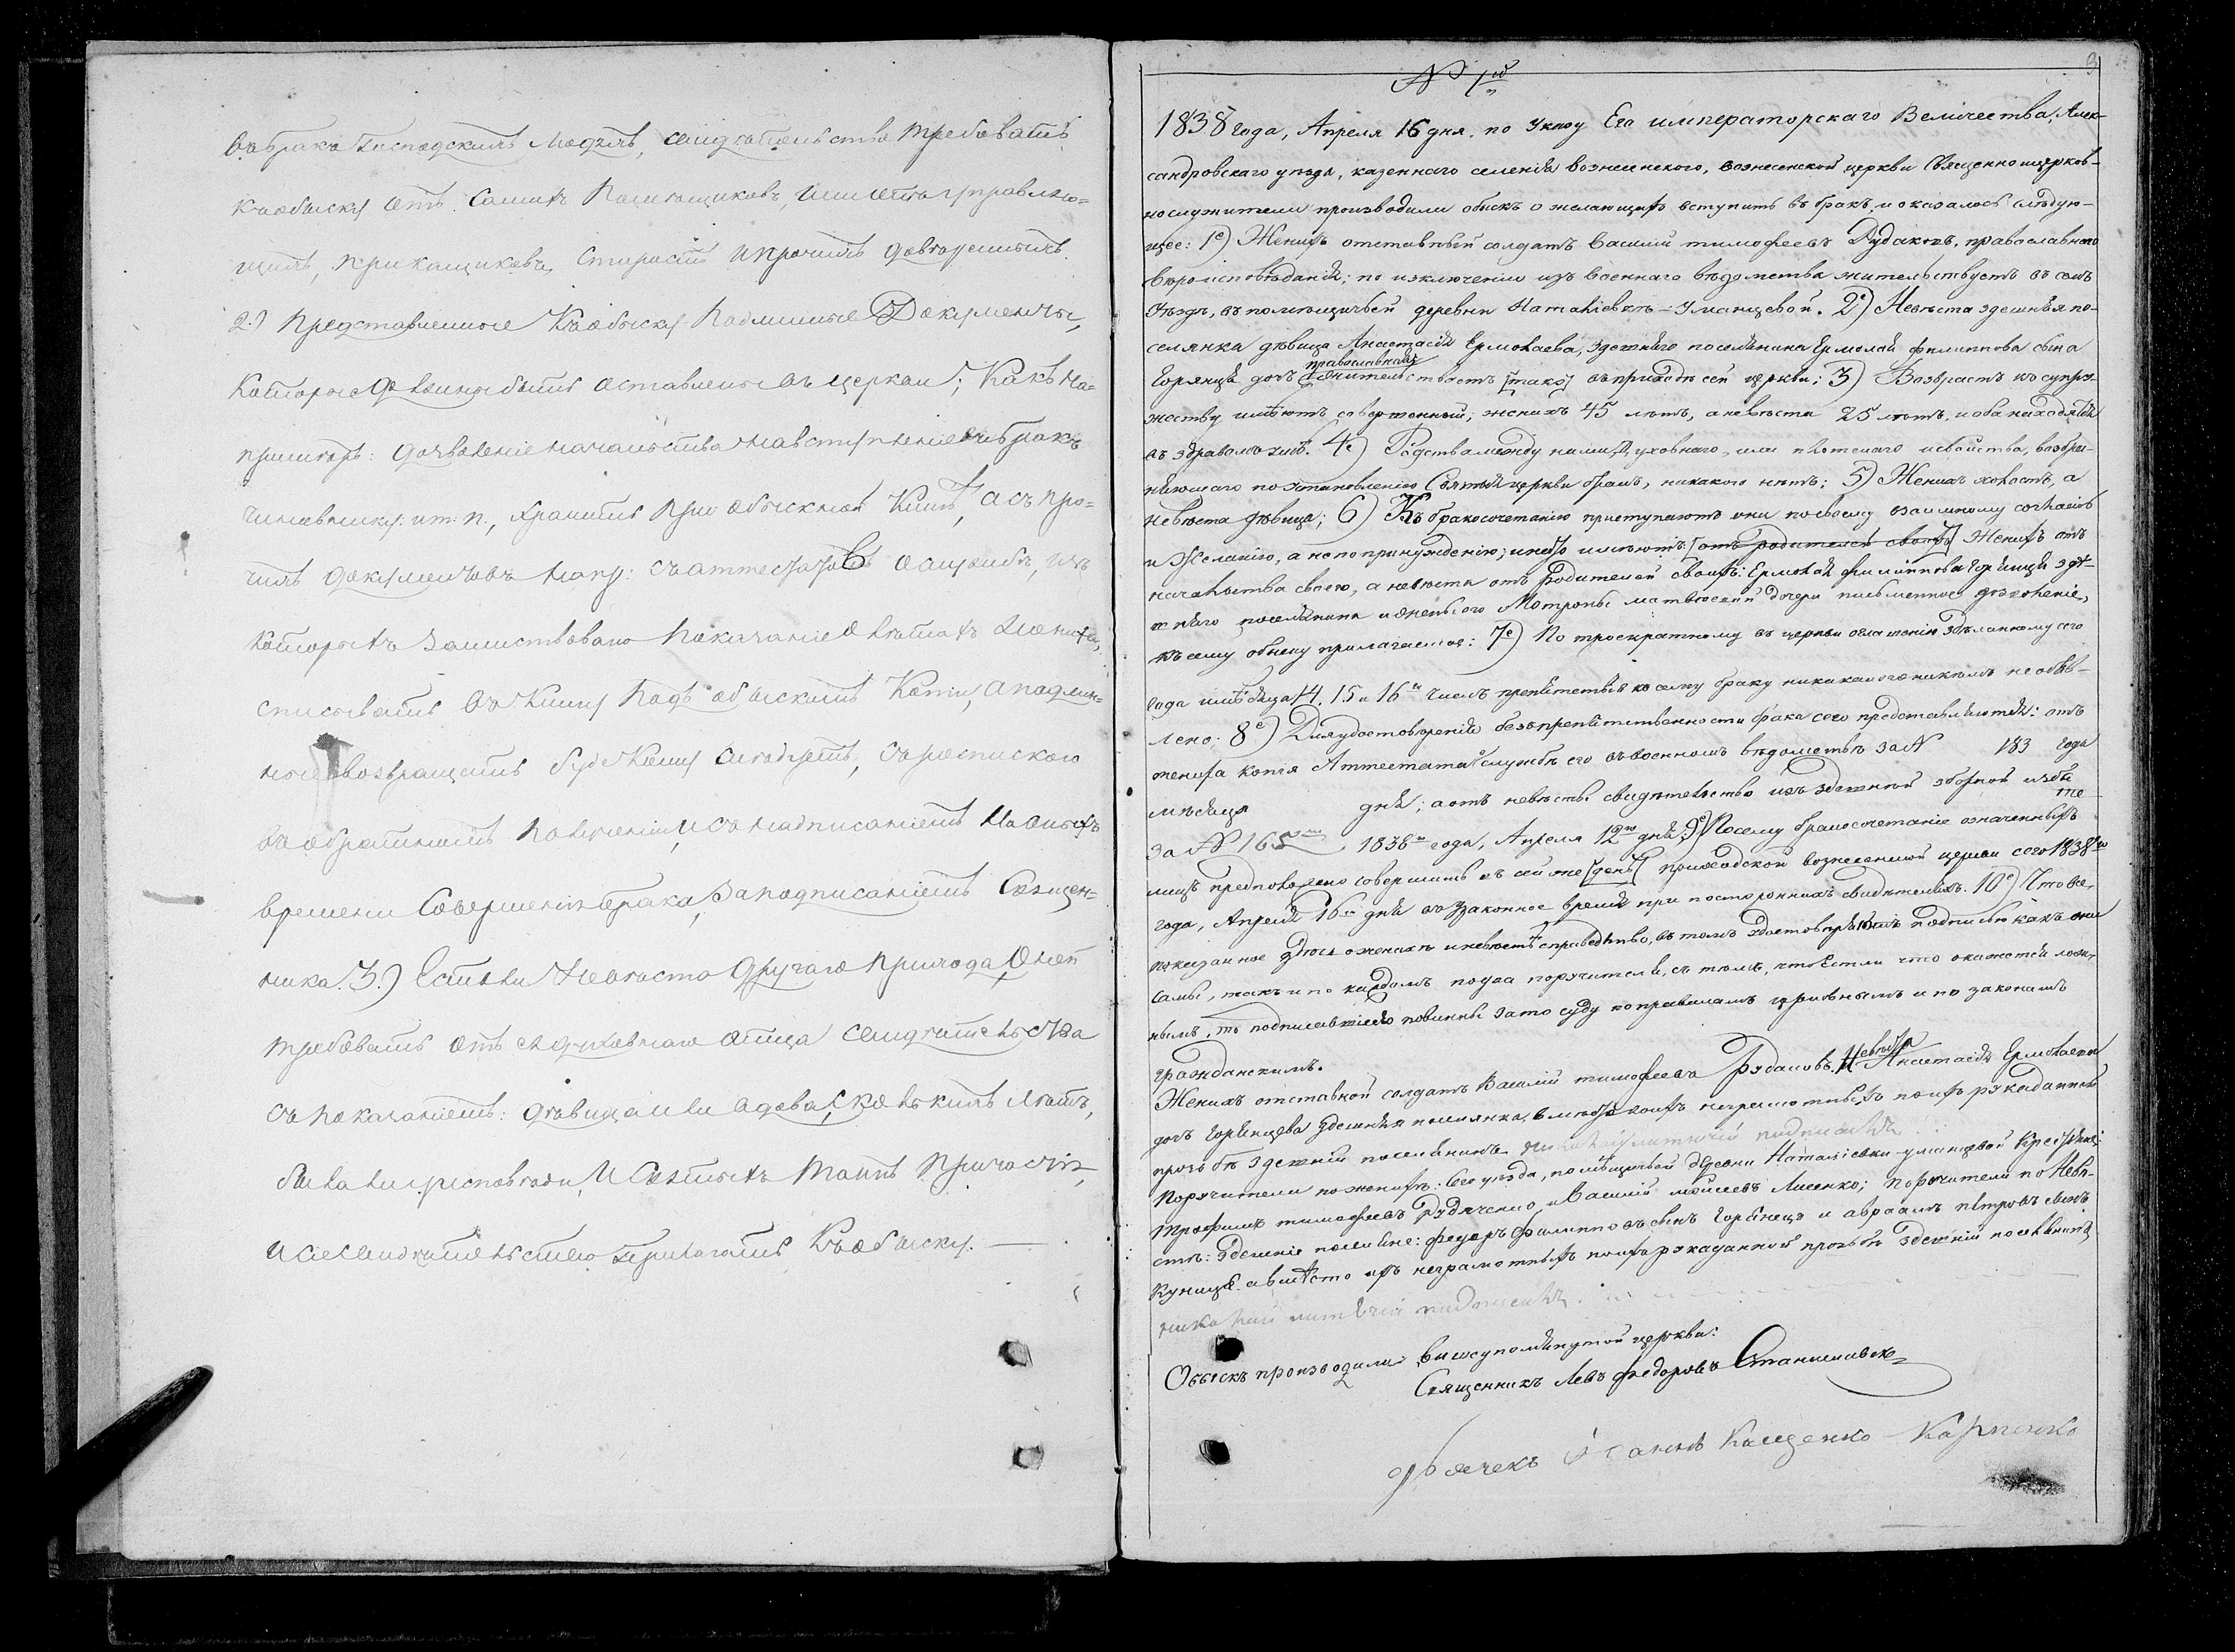 въ бракъ Господскимъ Людямъ, свидѣтельства требовать
къ обыску отъ самихъ Помѣщиковъ, или отъ управляю=
щихъ, прикащиковъ, Старостъ и прочихъ довѣренныхъ.
2.) Представленные къ обыску подлинные Документы,
которые должны быть оставлены въ церкви; какъ на=
примѣръ: дозволеніе начальства на вступленіе въ бракъ
чиновнику: и т: п., хранить при обыскной книгѣ, а съ про=
чихъ документовъ напр: съ аттестатовъ о службѣ, изъ
которыхъ заимствовано показаніе о лѣтахъ жениха,
списывать въ книгу подъ обыскомъ копіи, а подлин=
ные возвращать кому слѣдуетъ, съ роспискою
въ обратномъ полученіи, и съ надписаніемъ на оныхъ
времени совершенія брака, за подписаніемъ Священ=
ника. 3.) Естьли Невѣста другаго прихода, о ней
требовать отъ ея духовнаго отца свидѣтельства
съ показаніемъ: дѣвица или вдова, сколькихъ лѣтъ,
была ли у исповѣди, и Святыхъ таинъ причастія,
и сіе свидѣтельство прилагать къ обыску.
3
№ 1й
1838 года, Апреля 16 дня, по Указу Его императорскаго Величества, Алек-
сандровскаго уѣзда, казеннаго селенія вознесенского, вознесенской церкви Священно и церков-
нослужители производили обыскъ о желающихъ вступить въ бракъ, и оказалось слѣдую-
щее: 1е) Женихъ отставный солдатъ Василий тимофеевъ Рудаковъ, православнаго
вѣроисповѣданія; по изключенію изъ военнаго вѣдомства жительствуетъ въ семъ
Уѣздѣ, въ помѣщичьей деревни Наталіевкѣ-Уманцевой. 2е) Невѣста здешняя по-
селянка дѣвица Анастасія Ермолаева, здешняго поселянина Ермолая филиппова сына
православная
Горянца дочь жительствуетъ [тако] въ приходѣ сей церкви; 3) Возрастъ къ супру-
жеству имѣютъ совершенный; женихъ 45 лѣтъ, а невѣста 25 лѣтъ, и оба находятся
въ здравомъ умѣ. 4е) Родства между ними, духовнаго, или плотскаго и свойства, возбра-
няющаго по установленію Святыя церкви бракъ, никакого нѣтъ; 5) Женихъ холостъ, а
невѣста дѣвица; 6) Къ бракосочетанію приступаютъ они по своему взаимному согласію
и Желанію, а не по принужденію; и на то имѣютъ [отъ родителей своихъ] Женихъ отъ
начальства своего, а невѣста отъ родителей своихъ: Ермолая филиппова Горянца зде-
шняго поселянина и жены его Мотроны матвѣевой дочери письменное дозволеніе,
къ сему обыску прилагаемое: 7е) По троекратному въ церкви оглашенію зделанному сего
года и мѣсяца 14, 15 и 16го числъ препятствія къ сему браку никакого никемъ не объяв-
лено; 8е) Для удостовѣренія безпрепятственности брака сего представляются: отъ
жениха копія Аттестата о службѣ его въ военномъ вѣдомствѣ за № 183 года
мѣсяца дня; а отъ невѣсты свидѣтельство изъ здешней зборной избы
за № 165мъ 1838го года, Апреля 12го дня; 9е) Посему бракосочетаніе означенныхъ
лицъ предположено совершить въ сей же [день] приходской вознесенской церкви сего 1838го
года, Апреля 16го дня въ узаконное время при постороннихъ свидѣтеляхъ. 10е) Что все,
показанное здѣсь о женихѣ и невѣстѣ справедливо, въ томъ удостовѣряютъ подписью какъ они
сами, такъ и по каждомъ по два поручителя, съ тѣмъ, что Естли что окажется лож-
нымъ, то подписавшіеся повинны за то суду по правиламъ церковнымъ и по законамъ
гражданскимъ.
Женихъ отставной солдатъ Василій тимофеевъ Рудаковъ. Невѣста Анастасія Ермолаева
дочь Горянцева здешняя поселянка, вмѣсто коихъ неграмотныхъ по ихъ рукоданной
прозьбѣ здешній поселянинъ николай литвичій подписалъ.
Поручители по женихѣ: Сего уѣзда, помѣщичьей деревни Наталіевки-уманцевой Крестьяне:
трофимъ тимофеевъ Рудаченко, и Василій мойсеевъ Лисенко; поручители по Невѣ-
стѣ: Здешніе поселяне: федоръ филипповъ сынъ Горянецъ и авраамъ петровъ сынъ
Куница. а вмѣсто ихъ неграмотныхъ по ихъ рукаданной прозьбѣ здешній поселянинъ
николай литвичій подписалъ.
Обыскъ производили вышеупомянутой церкви:
Священникъ Левъ федоровъ Станиславск
Дьячекъ Іоаннъ Кащенко-Карпенко